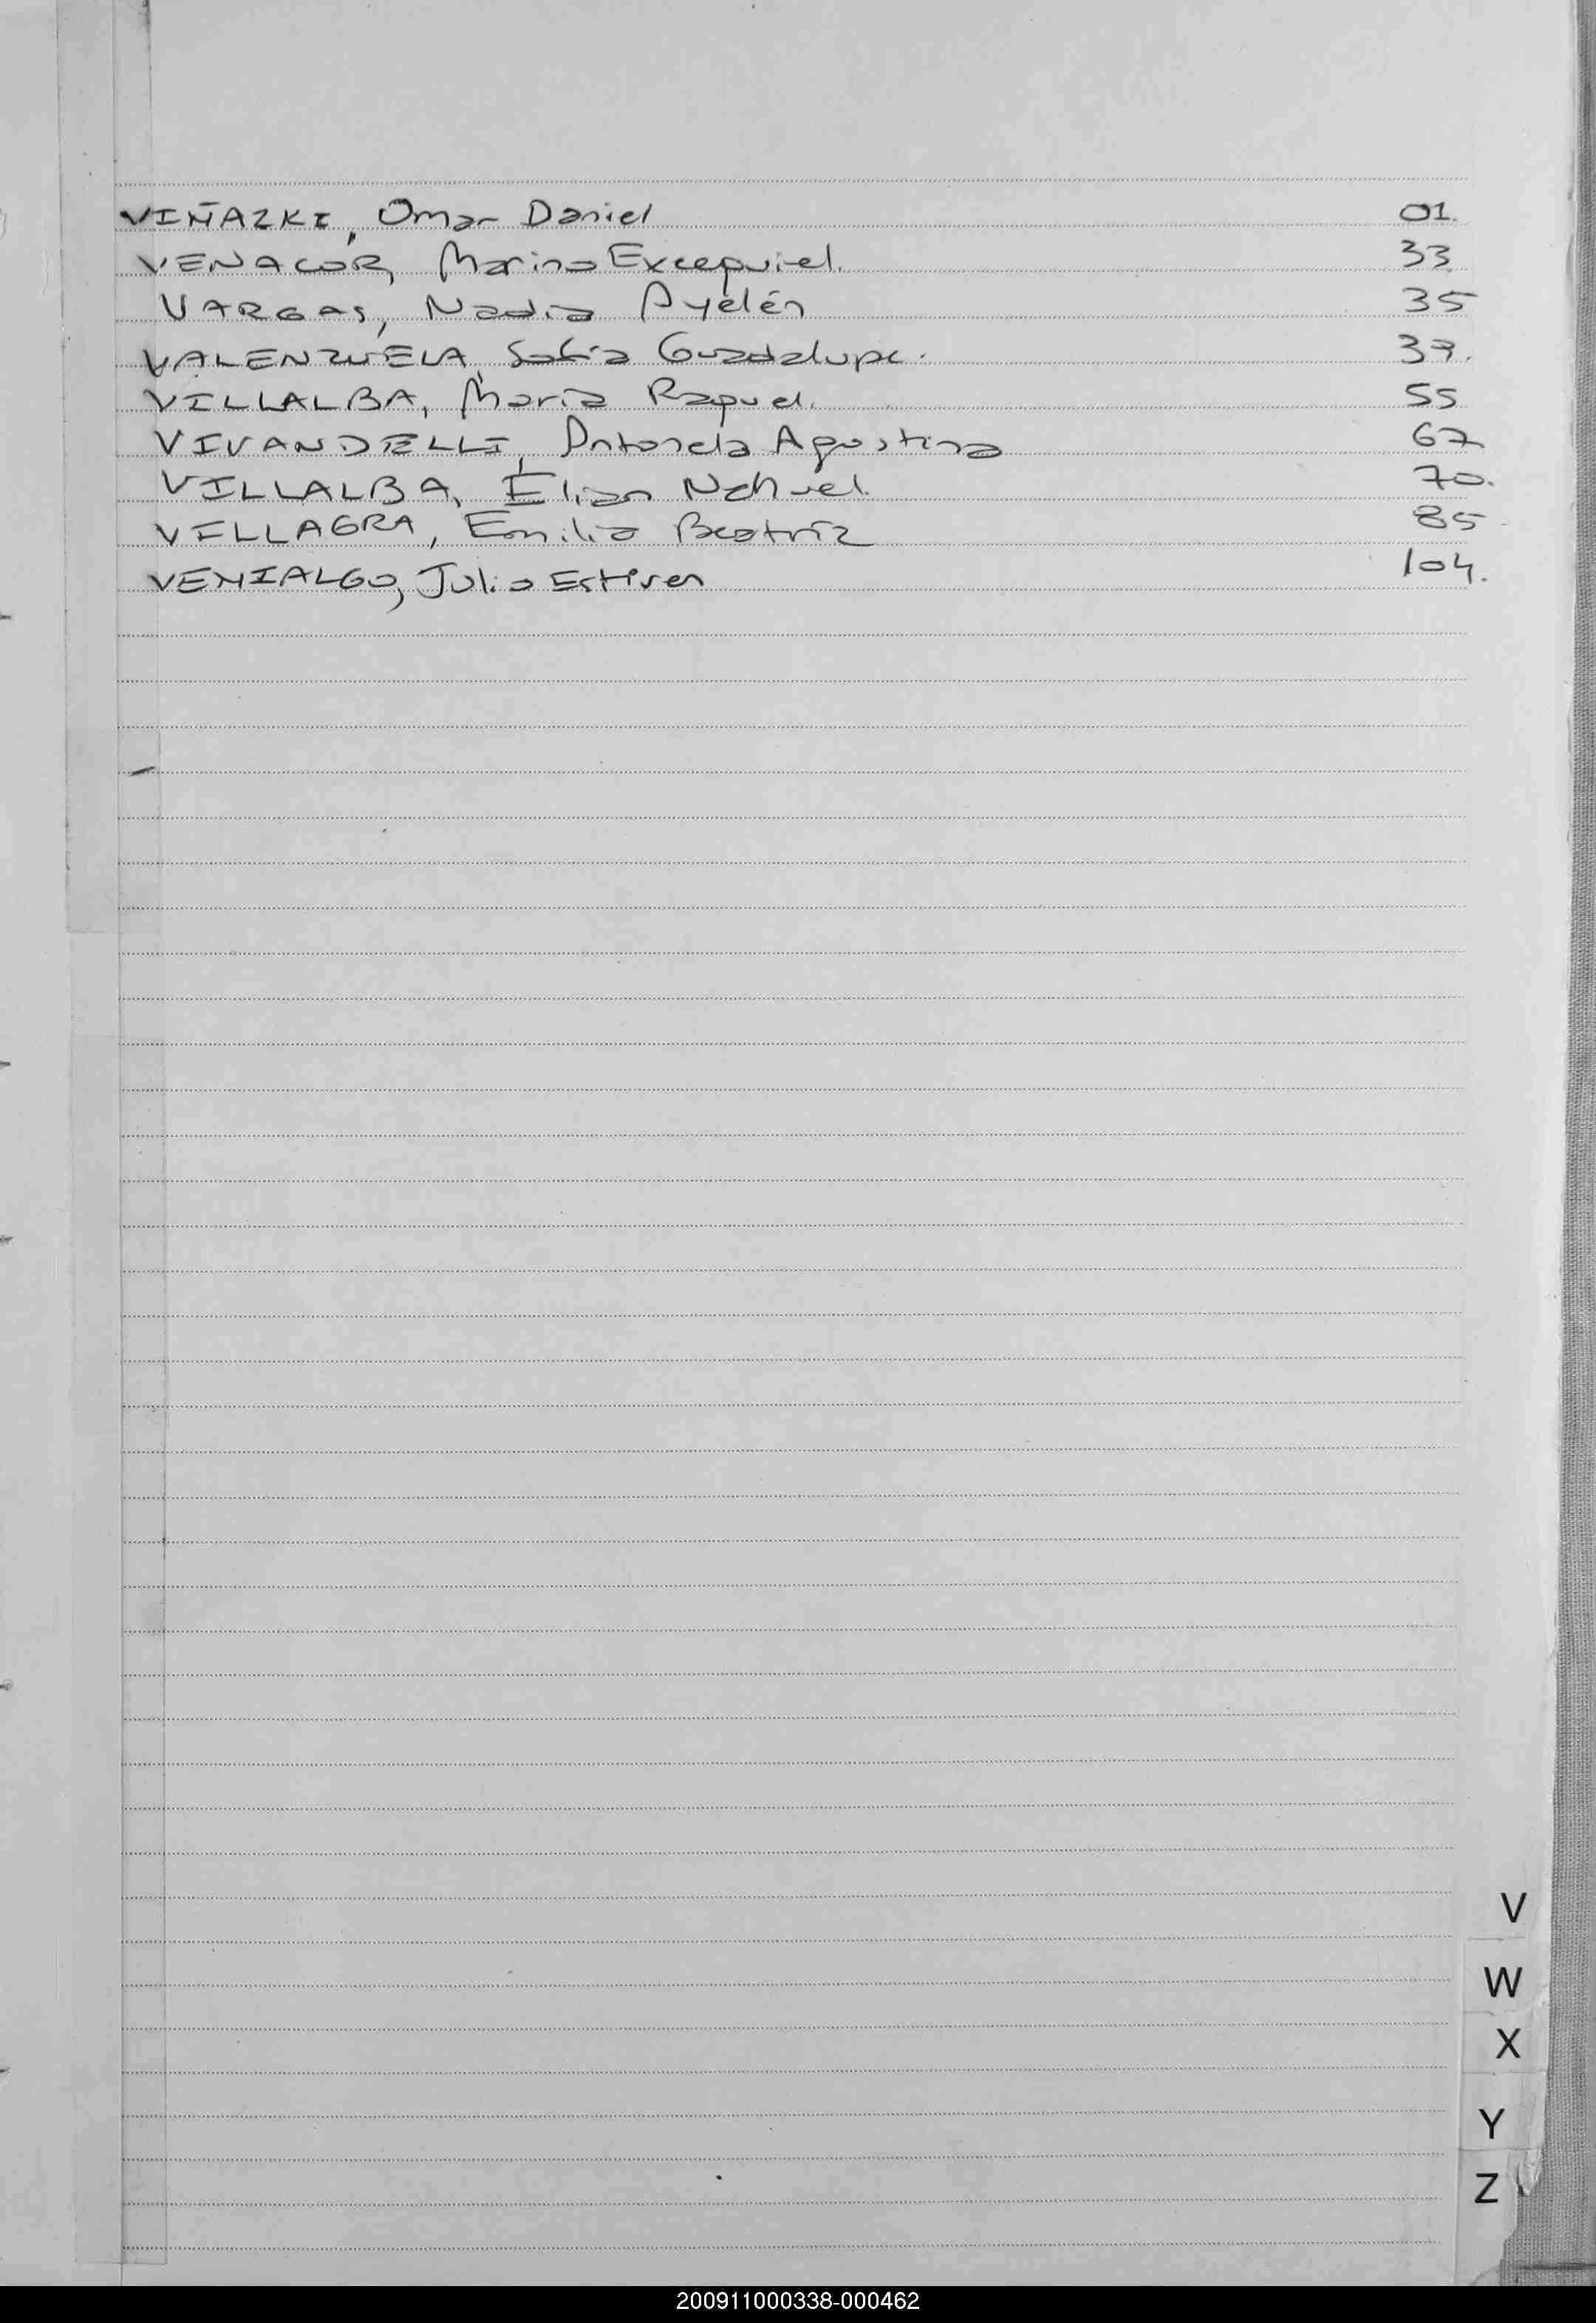 VIÑAZKI, Omar Daniel 01.
VENACOR, Marino Excequiel. 33
VARGAS, Nadia Ayelén 35
VALENZUELA, Sofía Guadalupe. 37.
VILLALBA, María Raquel. 55
VIVANDELLI, Antonela Agostina 67
VILLALBA, Elian Nahuel. 70.
VILLAGRA, Emilia Beatríz 85
VENIALGO, Julio Estiven 104.
V
W
X
Y
Z
200911000338-000462